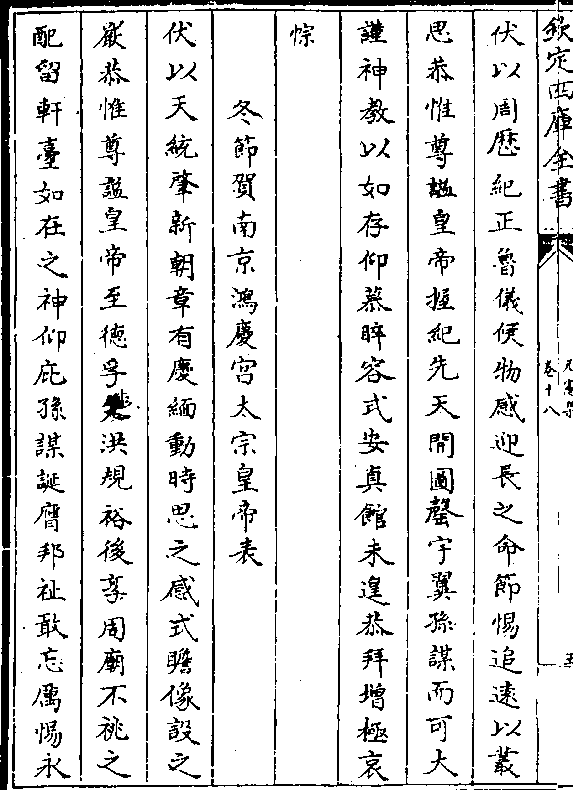 欽定四庫全書
卷十八
五
伏以周歴紀正魯儀候物感迎長之命節惕追遠以叢
思恭惟尊諡皇帝握紀先天開圖罄宇翼孫謀而可大
謹神教以如存仰慕睟容式安真館未遑恭拜增極哀
悰
冬節賀南京鴻慶宮太宗皇帝表
伏以天統肇新朝章有慶緬動時思之感式瞻像設之
嚴恭惟尊諡皇帝至德孚洪規裕後享周廟不祧之
配留軒臺如在之神仰庇孫謀誕膺邦祉敢忘厲惕永